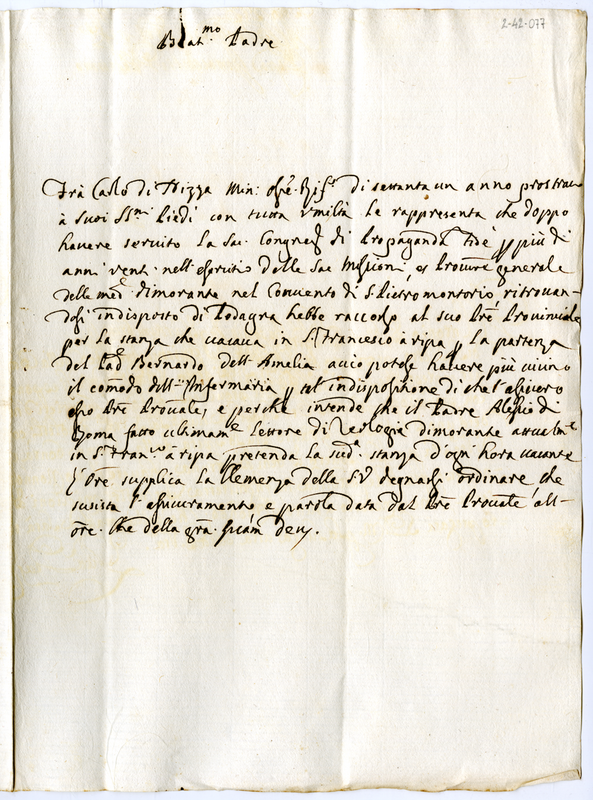 2-42-077
Beat.mo Padre
Frà Carlo di Nizza Min: oss.e Rif.o di settanta un anno prostrato
à suoi SS.mi Piedi con tutta Umiltà le rappresenta che doppo
havere servito la Sac. Congreg.e di Propaganda fide p più di
anni venti nell'esercitio delle Sac Missioni, e Procure generale
delle med.e dimorante nel Convento di S. Pietro montorio, ritrovan-
dosi indisposto di Podagra hebbe raccorso al suo Pre Provinciale
per la stanza che vacava in S. Francesco à ripa p la partenza
del Pad.e Bernardo dell'Amelia accio potesse havere più vicino
il commodo dell'Infermaria p tal indispositione di che l'assicurò
esso Pre Provale, e perche intende che il Padre Alessio di
Roma fatto ultimam.e Lettore di Teologia dimorante attualm.e
in S. Fran.co à ripa pretenda la sud.a stanza d'ogni hora vacante
l'Ore supplica la Clemenza della S V degnarsi ordinare che
sussista l'assicuramento e parola data dal Pre Provale all'-
ore. Che della gra.